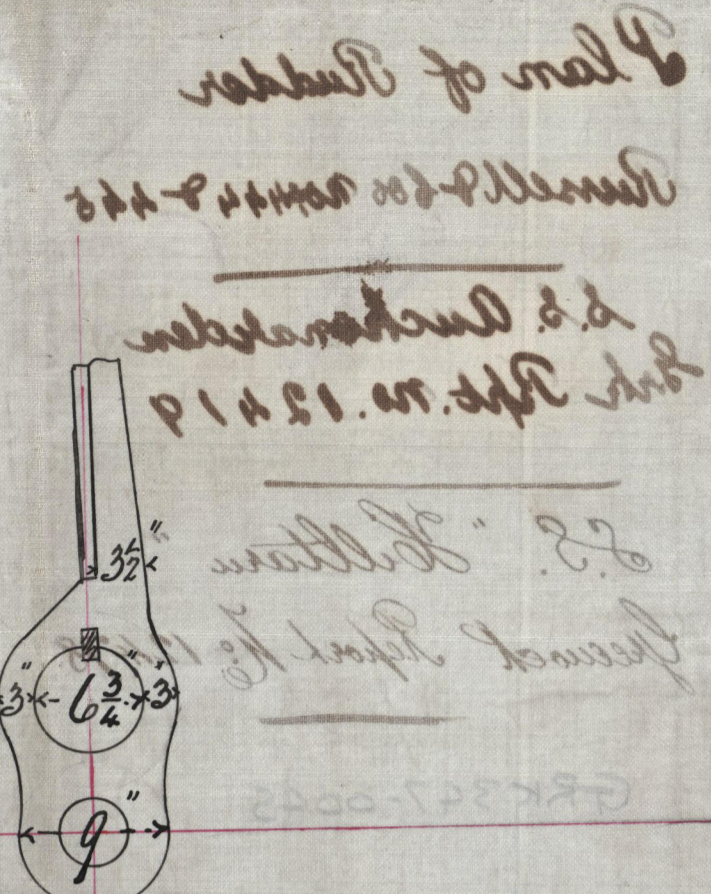 Plan of Rudder
Russell & Co's No 444 & 445
S.S. Auchenarden
Grk Rpt. no. 12419
S.S. "Hiltarn"
Greenock Report No
GRK347-0043
3½"
3" 6¾" 3"
9"